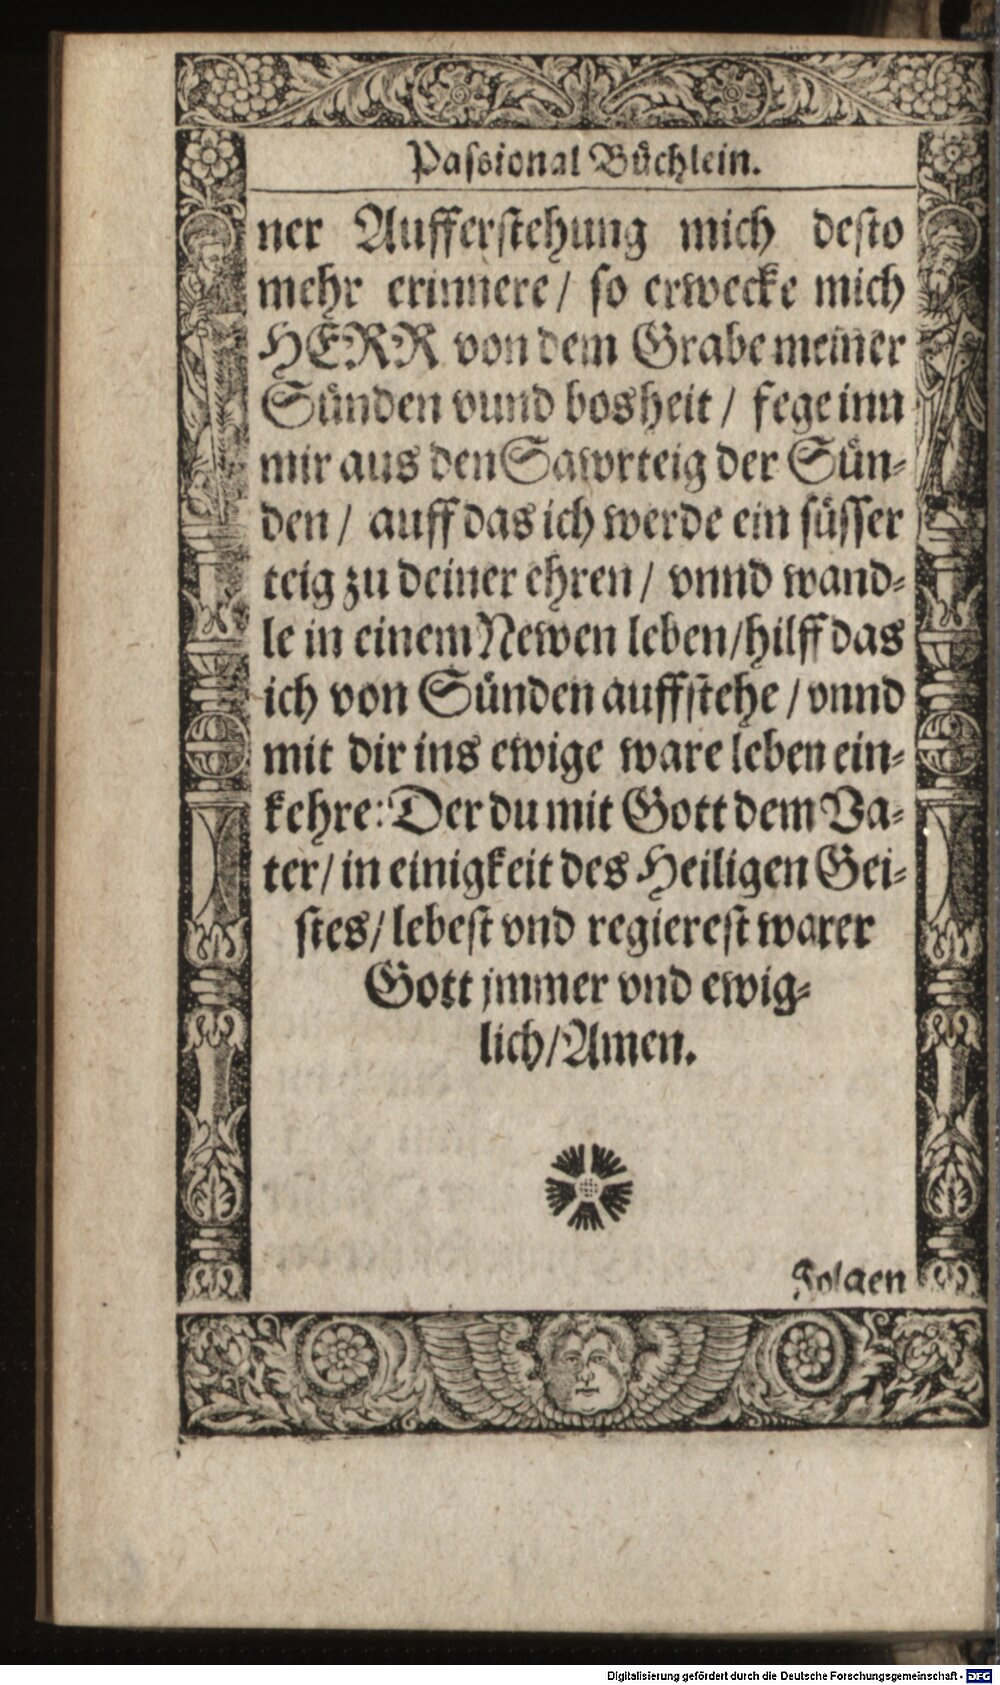 Passional Büchlein.
ner Aufferstehung mich desto
mehr erinnere / so erwecke mich
HERR von dem Grabe meiner
Sünden vund bosheit / fege inn
mir aus den Sawrteig der Sün-
den / auff das ich werde ein süsser
teig zu deiner ehren / vnnd wand-
le in einem Newen leben/hilff das
ich von Sünden auffstehe / vnnd
mit dir ins ewige ware leben ein-
kehre: Der du mit Gott dem Va-
ter/ in einigkeit des Heiligen Gei-
stes/ lebest vnd regierest warer
Gott jmmer vnd ewig-
lich/Amen.
Folgen
Digitalisierung gefördert durch die Deutsche Forschungsgemeinschaft - DFG